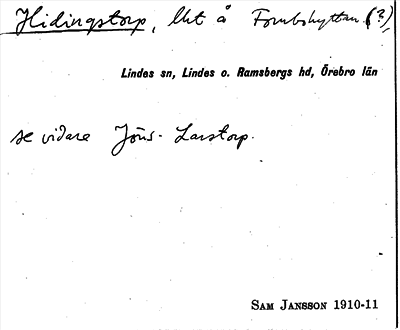 Hidingstorp, lht å Fornbohyttan (?),
Lindes sn, Lindes o. Ramsbergs hd, Örebro län
se vidare Jöns-Larstorp.
SAM JANSSON 1910-11